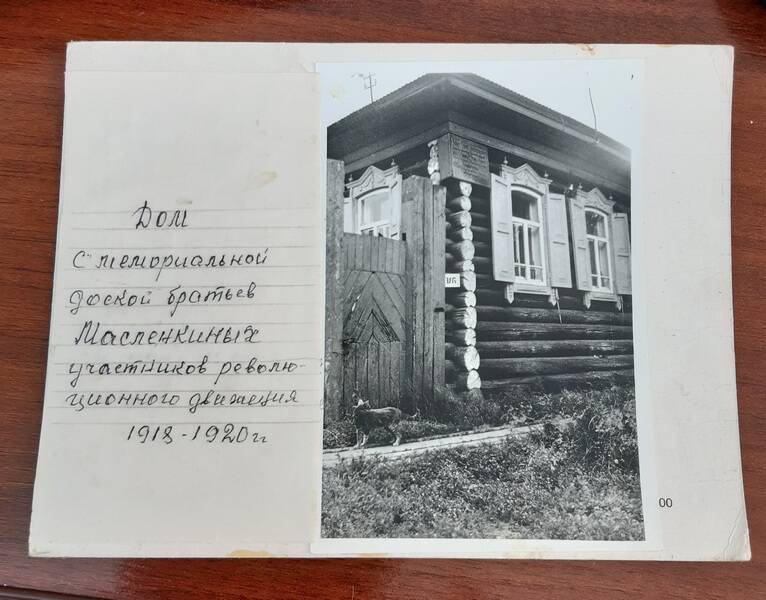 Дом
с мемориальной
доской братьев
Масленкиных
участников револю-
ционного движения
1918-1920гг
00